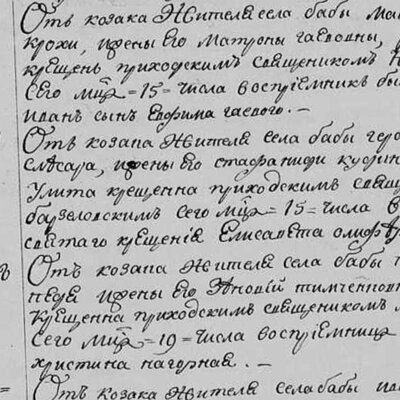 Отъ козака Жителя села бабы Ма
крохи, жены Его Матроны гаевовны,
крещенъ приходскимъ священикомъ
сего мца =15= числа воспрiемник бы
иванъ сынъ Ефима гаевого. —
Отъ козака Жителя села бабы гера
слѣсара, жены Его стафаниди
Улита крещенна приходскимъ свящ
барзеловскимъ сего мца =15= числа
святаго крещенiѧ Елисавета
Отъ козака Жителя села бабы
жены Его Яновiи
крещенна приходскимъ священикомъ
сего мца =19= числа воспрiемница
христина нагорная. —
Отъ козака Жителя села бабы